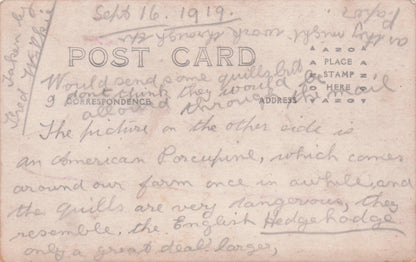 Sept 16. 1919.
Taken by
Fred Wilkie
POST CARD
AZO
PLACE
STAMP
HERE
AZO
CORRESPONDENCE
ADDRESS
Would send some quills, but
I don't think they would be
allowed through the mail
or they might work through the
The picture on the other side is
an American Porcupine, which comes
around our farm once in awhile, and
the quills are very dangerous, they
resemble, the English Hedgehodge
only a great deal larger,